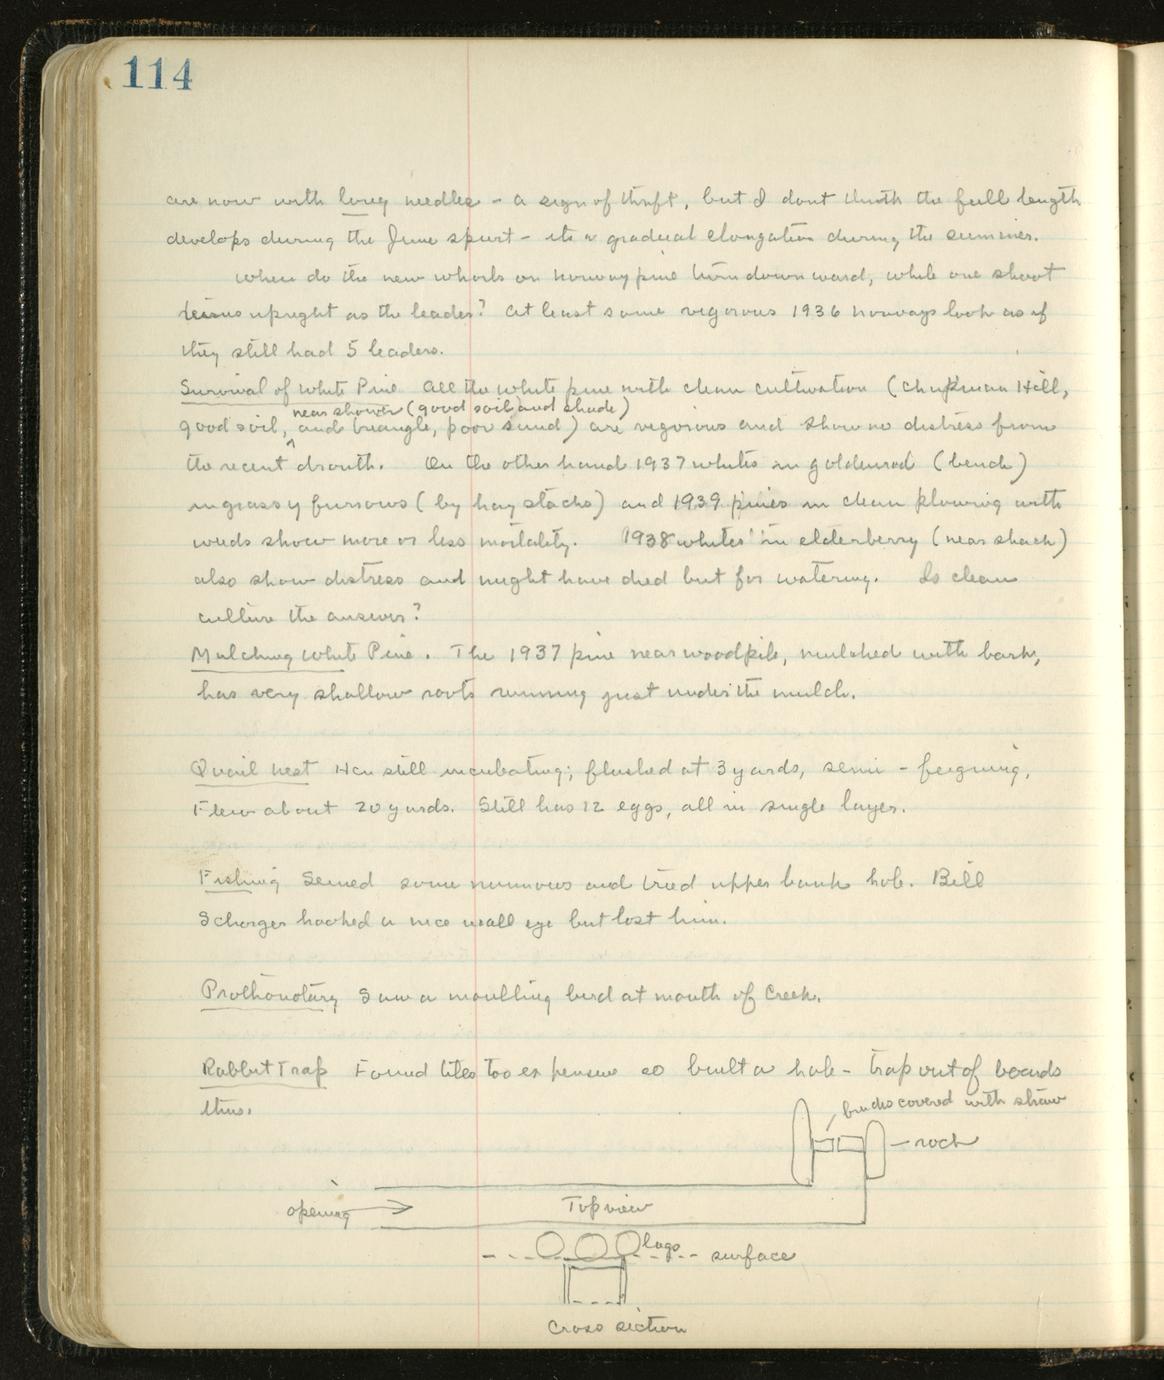 114
are now with long needles - a sign of thrift, but I dont think the full length
develops during the June spurt - its a gradual elongation during the summer.
When do the new whorls on norway pine turn downward, while one shoot
upright as the leader? At least some vigorous 1936 norways look as if
they still had 5 leaders.
Survival of White Pine All the white pine with clean cultivation (Chapman Hill,
near shower (good soil and shade)
good soil, and triangle, poor sand) are vigorous and show no distress from
the recent drouth. On the other hand 1937 whites in goldenrod (bench)
in grassy furrows (by hay stacks) and 1939 pines in clean plowing with
weeds show more or less mortality. 1938 whites in elderberry (near shack)
also show distress and might have died but for watering. Is clean
culture the answer?
Mulching White Pine. The 1937 pine near woodpile, mulched with bark,
has very shallow roots running just under the mulch.
Quail nest Hen still incubating; flushed at 3 yards, semi-feigning,
Flew about 20 yards. Still has 12 eggs, all in single layer.
Fishing Seined some minnows and tried upper bank hole. Bill
Schorger hooked a nice wall eye but lost him.
Prothonotary Saw a moulting bird at mouth of Creek.
Rabbit Trap Found tiles too expensive so built a hole-trap out of boards
thus.
covered with straw
rock
opening
Top view
logs
surface
Cross section